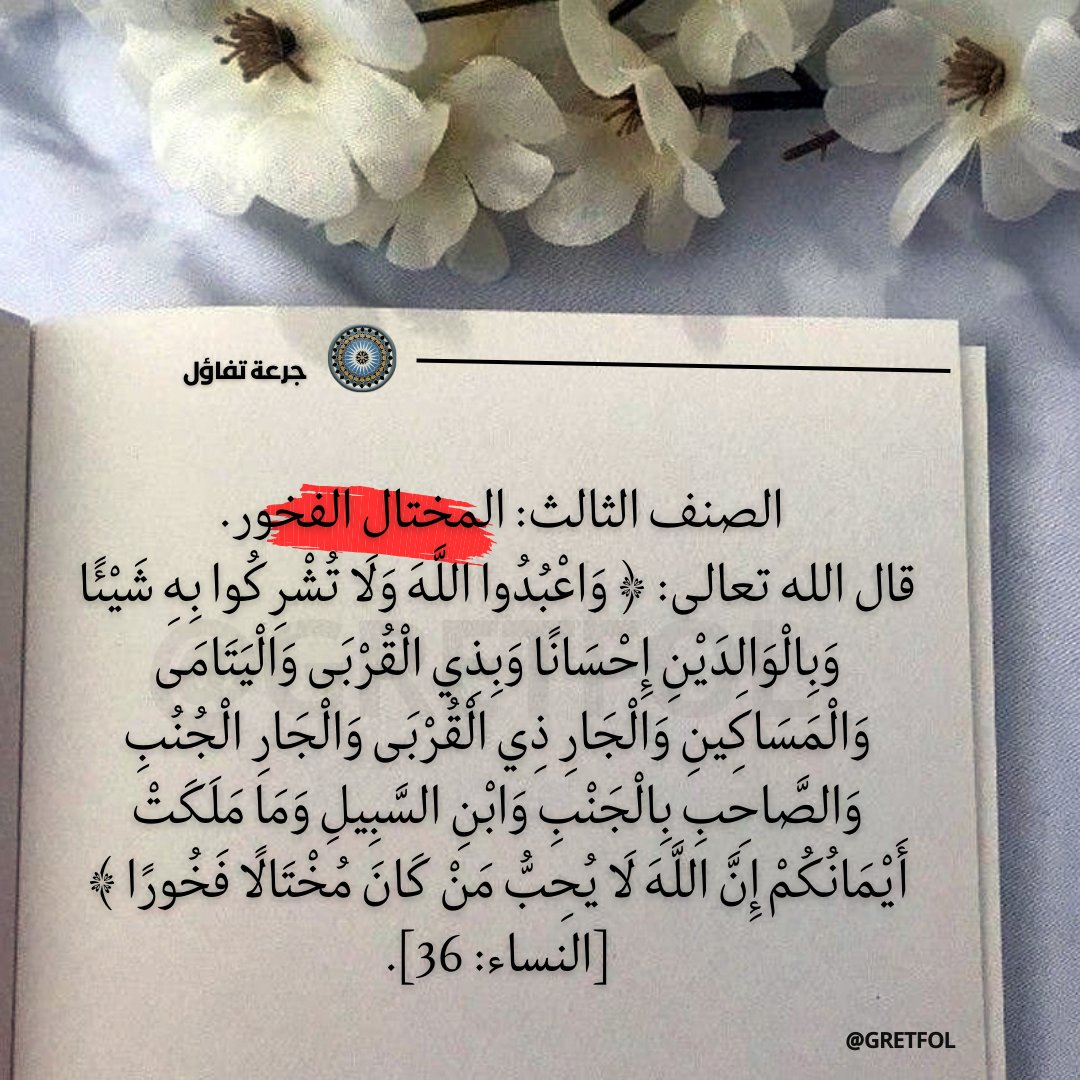 جرعة تفاؤل
الصنف الثالث: المختال الفخور.
قال الله تعالى: ﴿ وَاعْبُدُوا اللَّهَ وَلَا تُشْرِكُوا بِهِ شَيْئًا
وَبِالْوَالِدَيْنِ إِحْسَانًا وَبِذِي الْقُرْبَى وَالْيَتَامَى
وَالْمَسَاكِينِ وَالْجَارِ ذِي الْقُرْبَى وَالْجَارِ الْجُنُبِ
وَالصَّاحِبِ بِالْجَنْبِ وَابْنِ السَّبِيلِ وَمَا مَلَكَتْ
أَيْمَانُكُمْ إِنَّ اللَّهَ لَا يُحِبُّ مَنْ كَانَ مُخْتَالًا فَخُورًا ﴾
[النساء: 36].
@GRETFOL